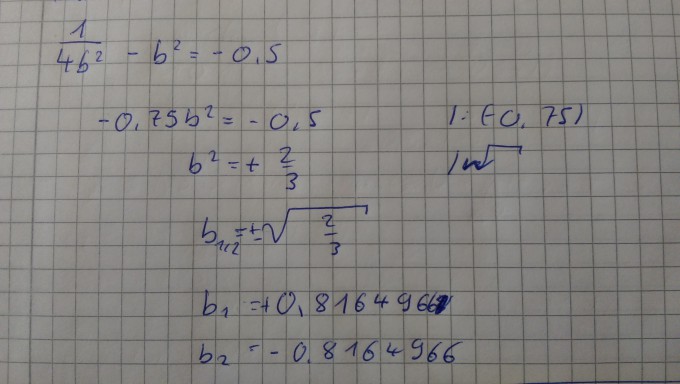 1/4b² - b² = - 0.5
-0.75b² = - 0.5 |: (-0.75)
b² = + 2/3 |√
b₁,₂ = ±√2/3
b₁ = +0.8164966
b₂ = - 0.8164966